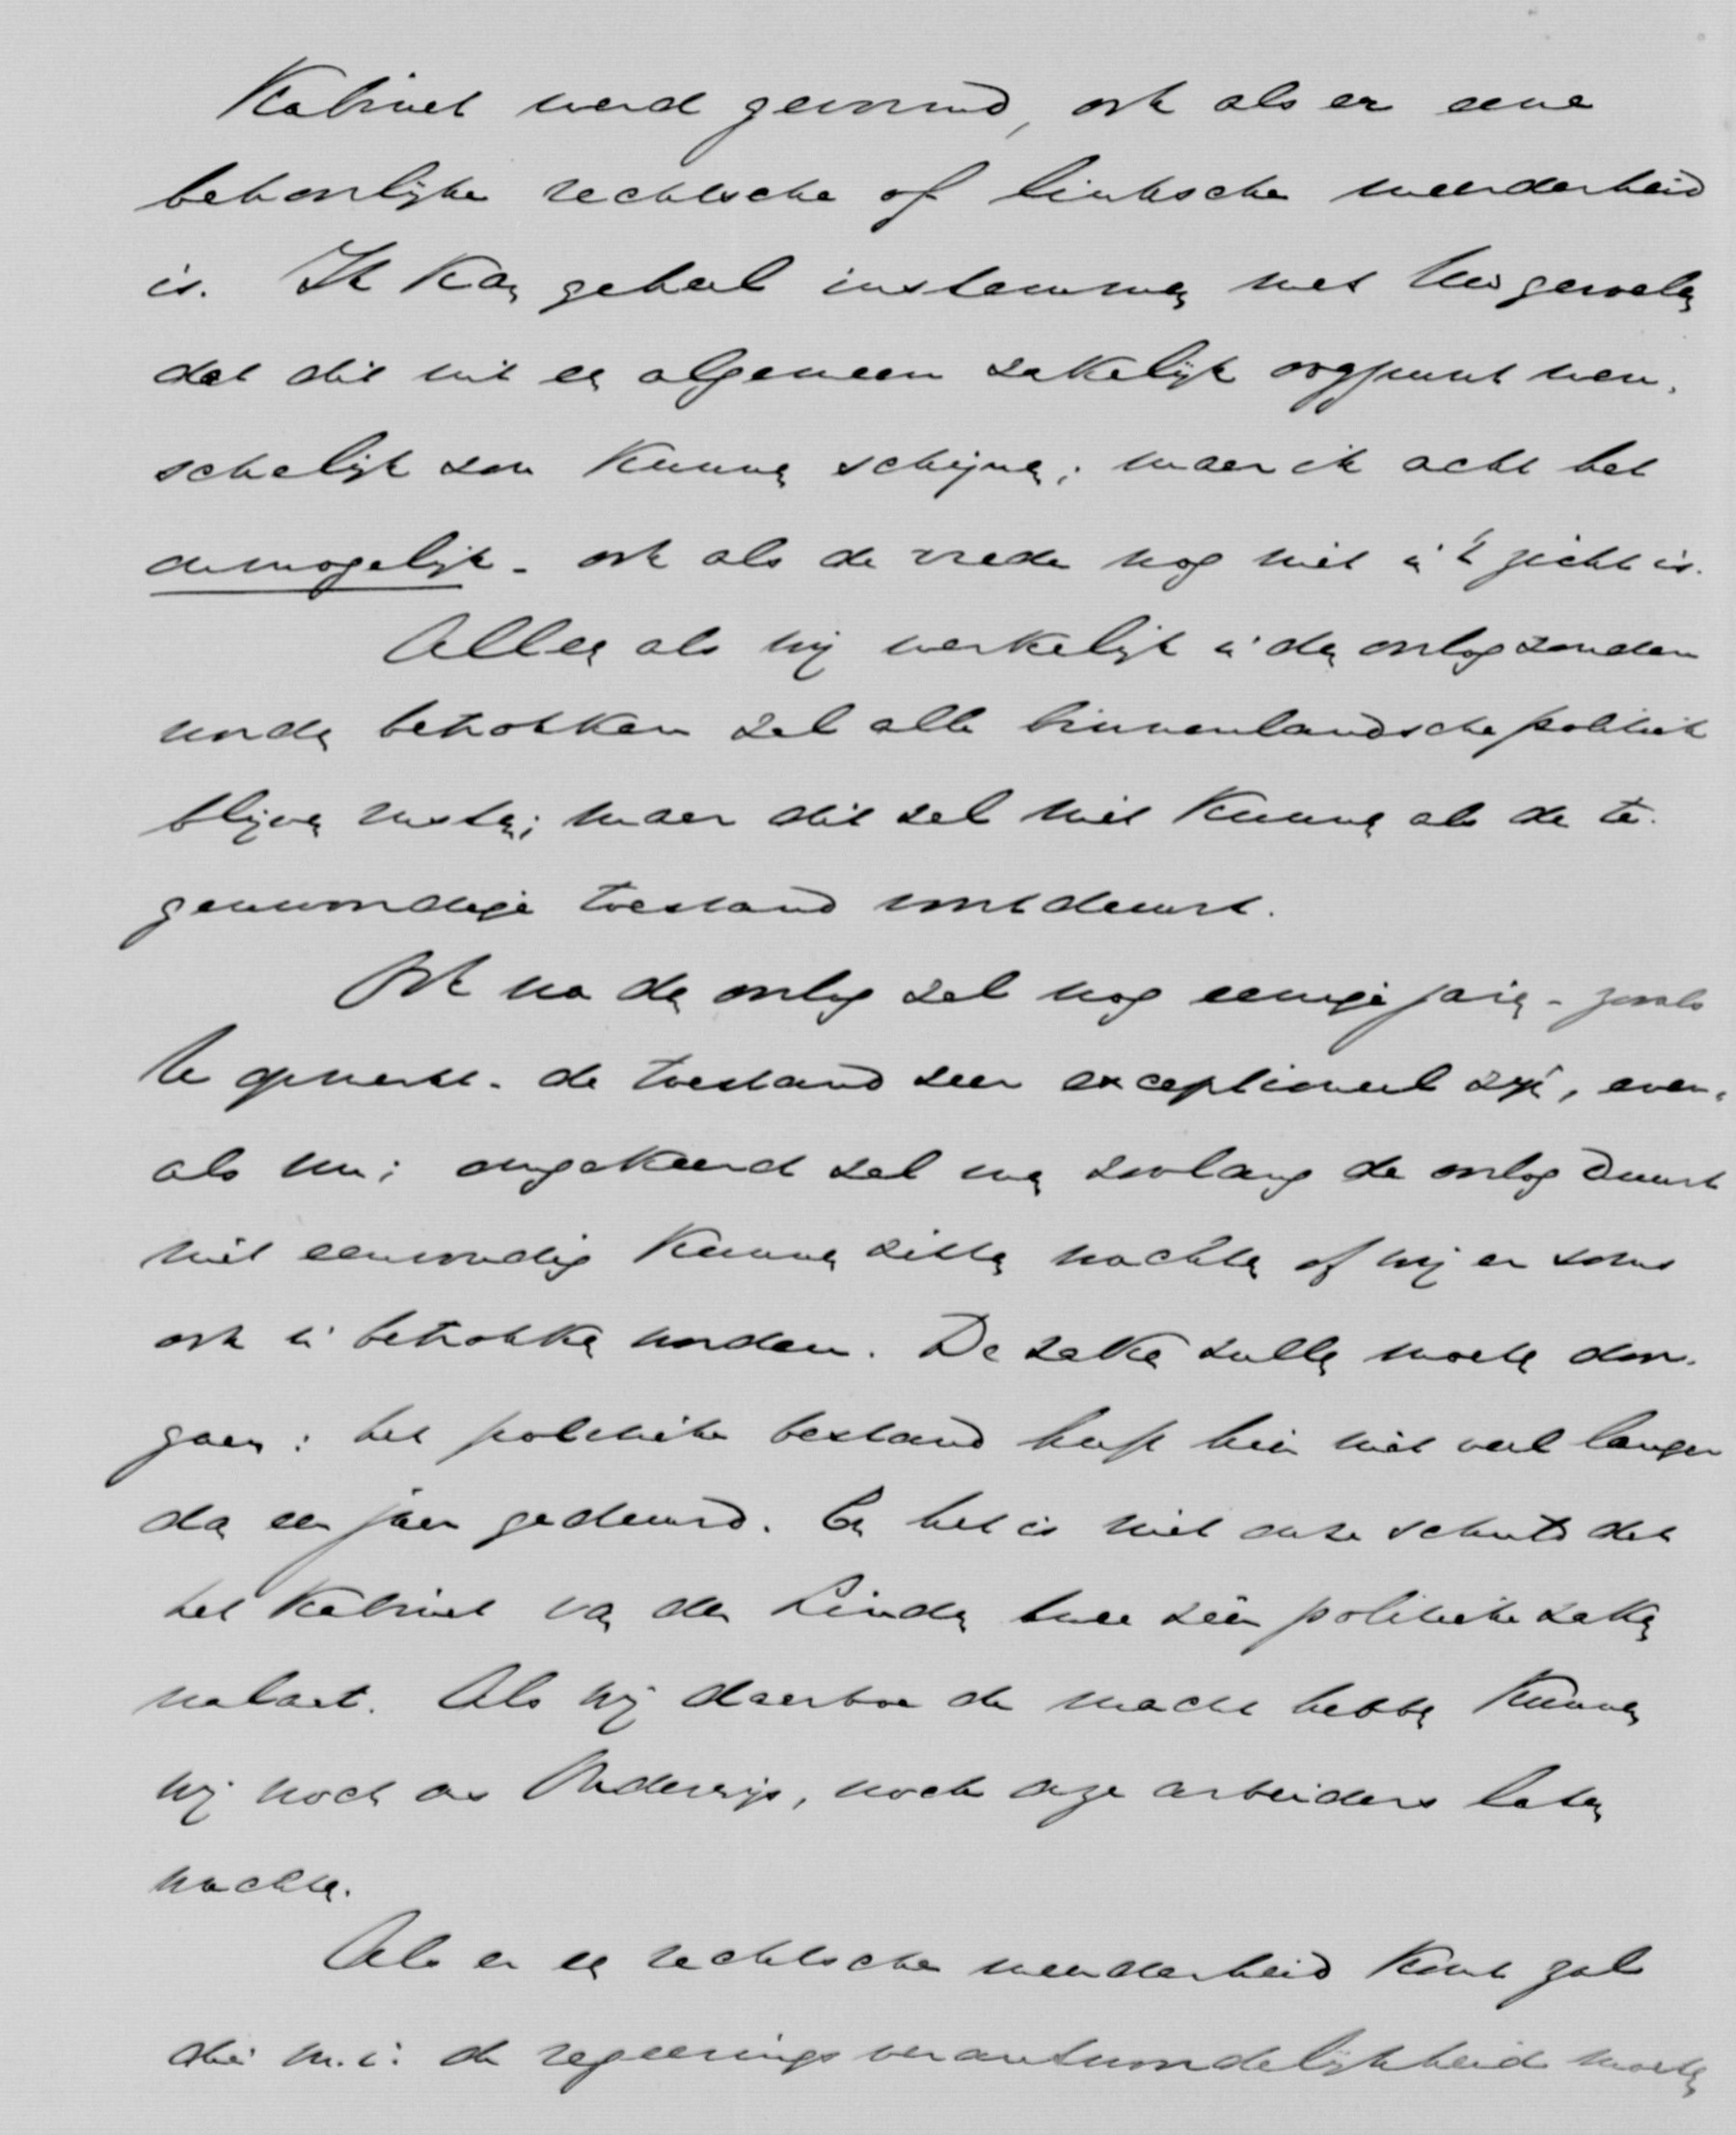 Kabinet werd gevormd, ook als er eene
behoorlijke rechtsche of linksche meerderheid
is. Ik kan geheel instemmen met Uw gevoelen
dat dit uit een algemeen zakelijk oogpunt wen-
schelijk zou kunnen schijnen; maar ik acht het
onmogelijk - ook als de vrede nog niet in 't zicht is.
Alleen als wij werkelijk in den oorlog zouden
worden betrokken zal alle binnenlandsche politiek
blijven rusten; maar dit zal niet kunnen als de te-
genwoordige toestand voortduurt.
Ook na den oorlog zal nog eenige jaren - zooals
U opmerkt - de toestand zeer exceptioneel zijn, even-
als nu; omgekeerd zal men zoolang de oorlog duurt
niet eenvoudig kunnen zitten wachten of wij er soms
ook in betrokken worden. De zaken zullen moeten door-
gaan: het politieke bestand heeft hier niet veel langer
dan een jaar geduurd. En het is niet onze schuld dat
het Kabinet van der Linden twee zéér politieke zaken
nalaat. Als wij daartoe de macht hebben kunnen
wij noch ons Onderwijs, noch onze arbeiders laten
wachten.
Als er een rechtsche meerderheid komt zal
die m.i. de regeeringsverantwoordelijkheid moeten